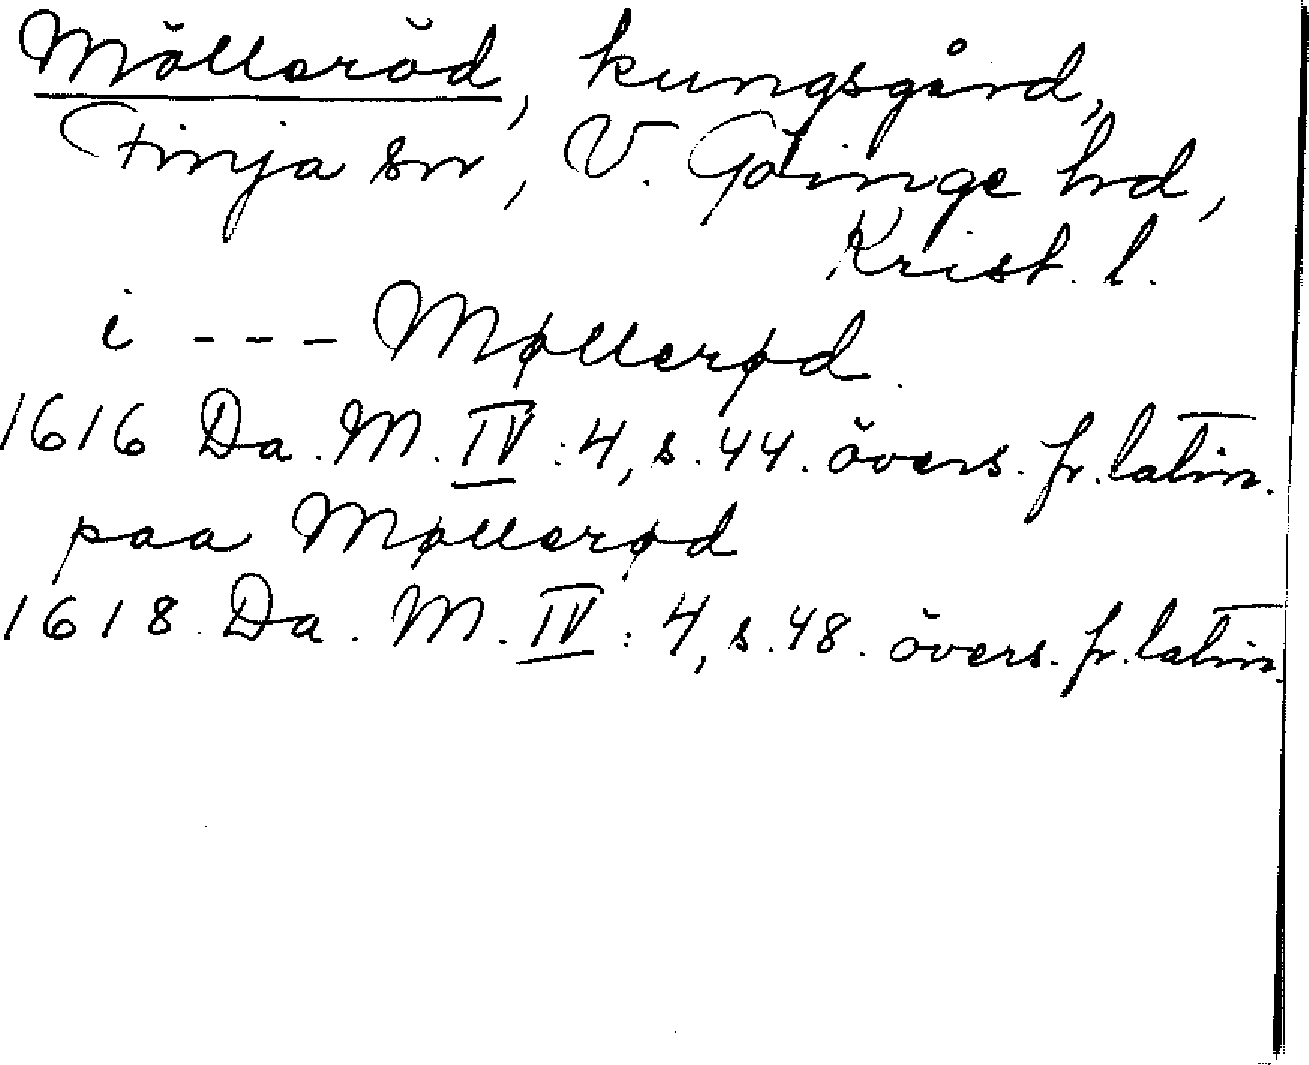 Mölleröd, kungsgård,
Finja sn, V. Göinge hd,
Krist. l.
i --- Møllerød.
1616 Da. M. IV : 4, s. 44. övers. fr. latin.
paa Møllerød
1618. Da. M. IV : 4, s. 48. övers. fr. latin.